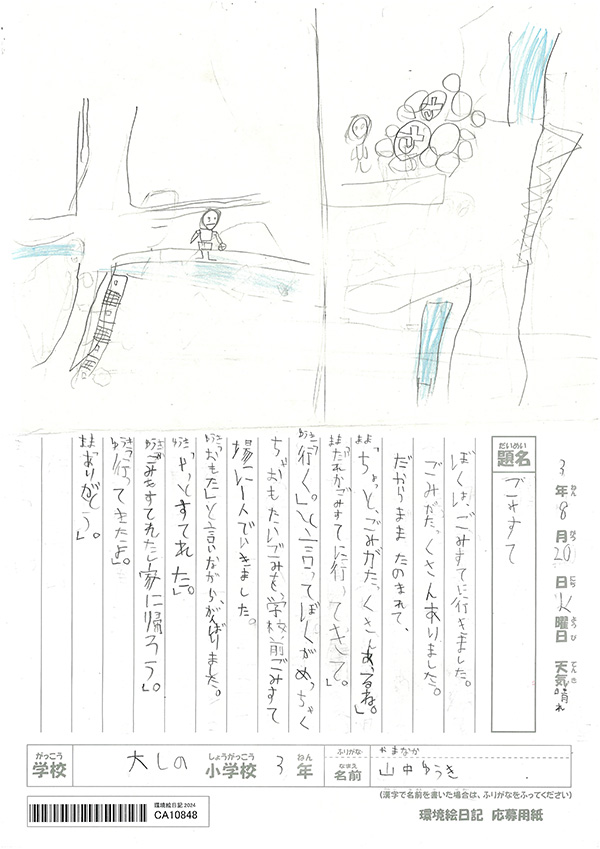 3年8月20日火曜日 天気晴れ
ねん がつ にち ようび てんき
だいめい
題名
ごみすて
ぼくは、ごみすてに行きました。
ごみがたっくさんありました。
だからままたのまれて、
まま「ちょっと、ごみがたっくさんあるね。」
まま「だれかごみすてに行ってきて。」
ゆうき「行く。」と言ってぼくがめっちゃく
ちゃおもたいごみを学校前ごみすて
場に一人でいきました。
ゆうき「おもたい」と言いながら、がんばりました。
ゆうき「やっとすてれた。」
ゆうき「ごみもすてれたし家に帰ろう。」
ゆうき「行ってきたよ。」
まま「ありがとう。」
がっこう
学校
大しの
しょうがっこう
小学校
3
ねん
年
ふりがな
やまなか
なまえ
名前
山中ゆうき
(漢字で名前を書いた場合は、ふりがなをふってください)
環境絵日記2024
CA10848
環境絵日記 応募用紙